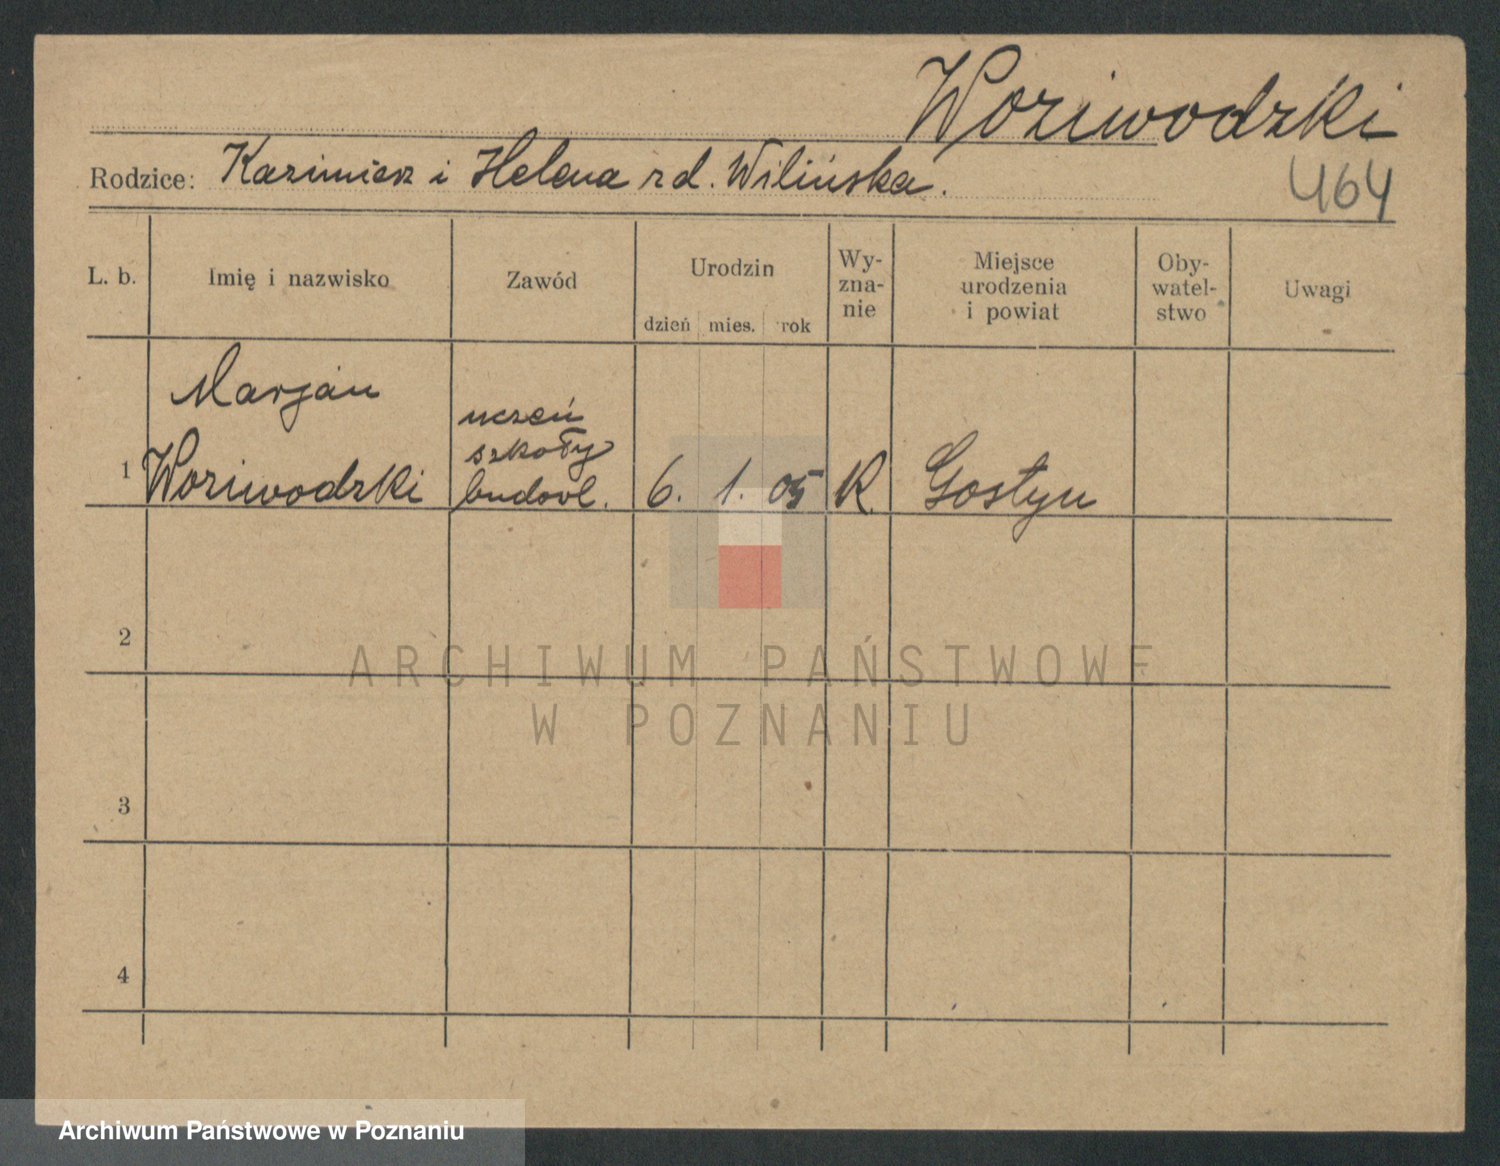 Woziwodzki
Rodzice: Kazimierz i Helena rd. Wilińska.
464
L. b. Imię i nazwisko Zawód Urodzin dzień mies. rok Wy-
zna-
nie Miejsce
urodzenia
i powiat Oby-
watel-
stwo Uwagi
Marjan
uczeń
szkoły
1 Woziwodzki budowl. 6. 1. 05 K. Gostyn
2
3
4
ARCHIWUM PAŃSTWOWE
W POZNANIU
Archiwum Państwowe w Poznaniu